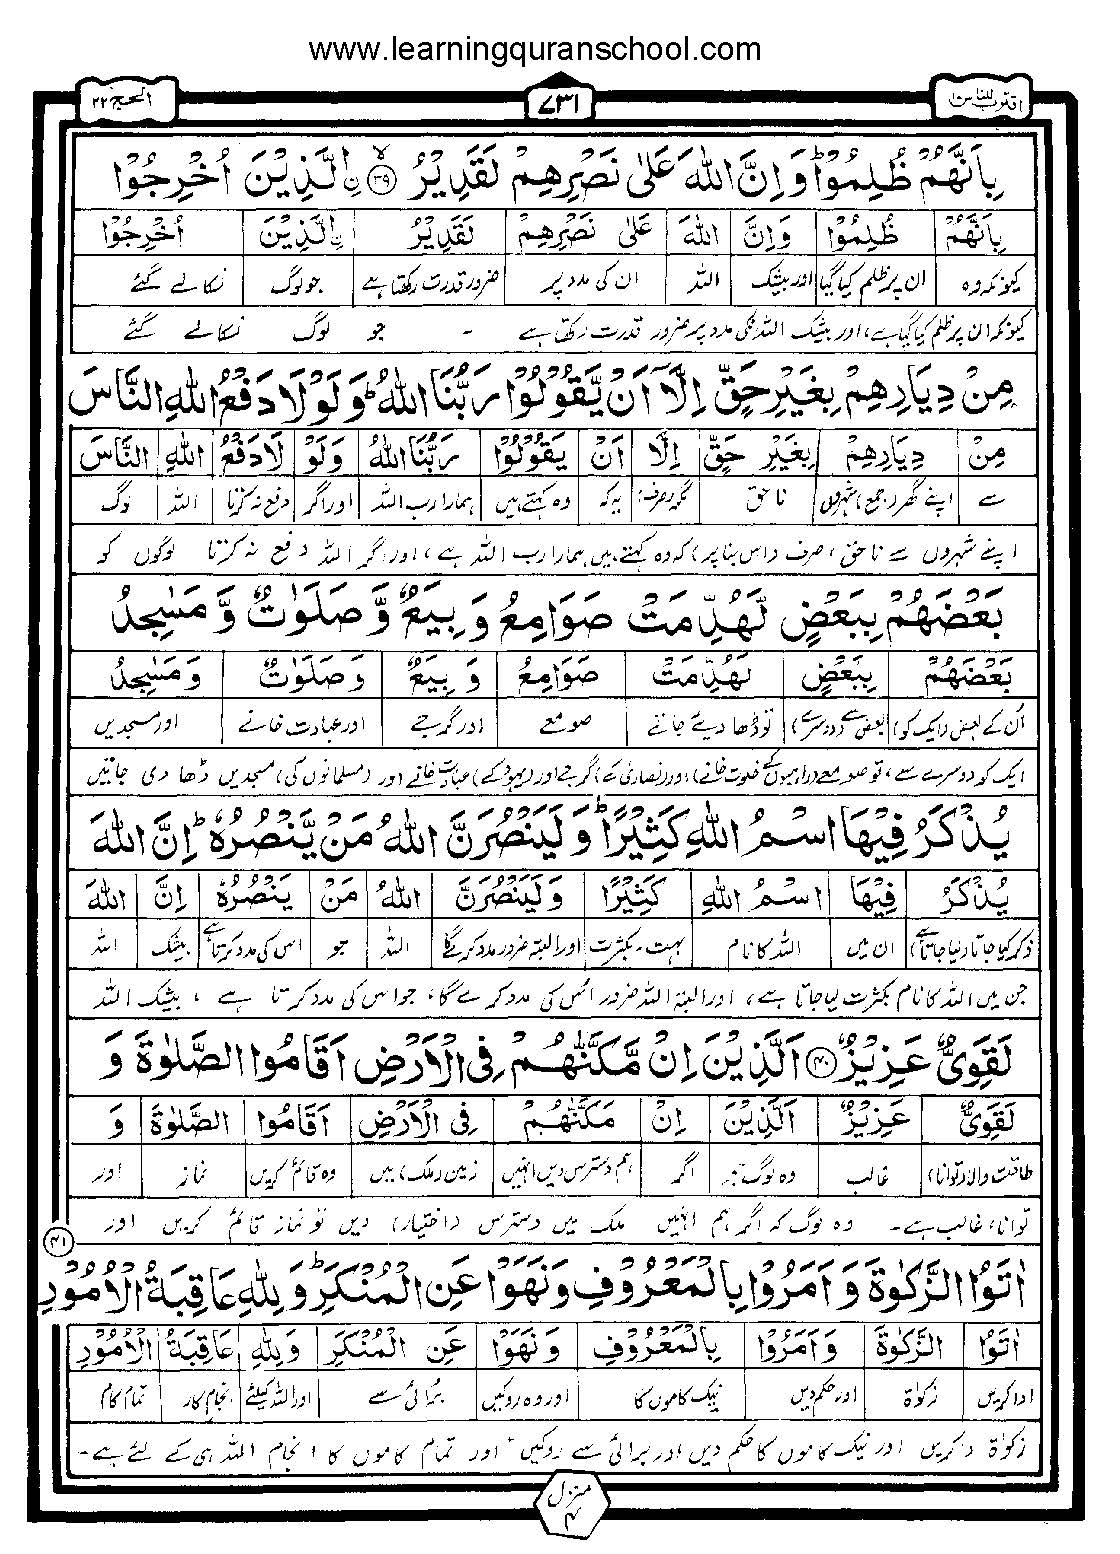 www.learningquranschool.com
اقترب للناس ۱۷
۷۳۱
الحج ۲۲
بِاَنَّهُمْ ظُلِمُوْا ؕ وَ اِنَّ اللّٰهَ عَلٰى نَصْرِهِمْ لَقَدِيْرُ ۙ﴿۳۹﴾ ۨالَّذِيْنَ اُخْرِجُوْا
بِاَنَّهُمْ ظُلِمُوْا وَاِنَّ اللّٰهَ عَلٰى نَصْرِهِمْ لَقَدِيْرُ ۨالَّذِيْنَ اُخْرِجُوْا
کیونکہ وہ ان پر ظلم کیا گیا اور بیشک اللہ ان کی مدد پر ضرور قدرت رکھتا ہے جو لوگ نکالے گئے
کیونکہ ان پر ظلم کیا گیا ہے، اور بیشک اللہ انکی مدد پر ضرور قدرت رکھتا ہے ۔ جو لوگ نکالے گئے
مِنْ دِيَارِهِمْ بِغَيْرِ حَقٍّ اِلَّاۤ اَنْ يَّقُوْلُوْا رَبُّنَا اللّٰهُ ؕ وَ لَوْ لَا دَفْعُ اللّٰهِ النَّاسَ
مِنْ دِيَارِهِمْ بِغَيْرِ حَقٍّ اِلَّا اَنْ يَقُوْلُوْا رَبُّنَا اللّٰهُ وَلَوْ لَا دَفْعُ اللّٰهِ النَّاسَ
سے اپنے گھر (جمع) شہروں ناحق مگر (صرف) یہ کہ وہ کہتے ہیں ہمارا رب اللہ اور اگر دفع نہ کرتا اللہ لوگ
اپنے شہروں سے ناحق، صرف (اس بنا پر) کہ وہ کہتے ہیں ہمارا رب اللہ ہے، اور اگر اللہ دفع نہ کرتا لوگوں کو
بَعْضَهُمْ بِبَعْضٍ لَّهُدِّمَتْ صَوَامِعُ وَ بِيَعٌ وَّ صَلَوٰتٌ وَّ مَسٰجِدُ
بَعْضَهُمْ بِبَعْضٍ لَهُدِّمَتْ صَوَامِعُ وَ بِيَعٌ وَ صَلَوٰتٌ وَ مَسٰجِدُ
ان کے بعض (ایک کو) بعض سے (دوسرے) تو ڈھا دیے جاتے صومعے اور گرجے اور عبادت خانے اور مسجدیں
ایک کو دوسرے سے، تو صومعے (راہبوں کے خلوت خانے) اور (نصاریٰ کے) گرجے اور (یہود کے) عبادت خانے اور (مسلمانوں کی) مسجدیں ڈھا دی جاتیں
يُذْكَرُ فِيْهَا اسْمُ اللّٰهِ كَثِيْرًا ؕ وَ لَيَنْصُرَنَّ اللّٰهُ مَنْ يَّنْصُرُهٗ ؕ اِنَّ اللّٰهَ
يُذْكَرُ فِيْهَا اسْمُ اللّٰهِ كَثِيْرًا وَلَيَنْصُرَنَّ اللّٰهُ مَنْ يَنْصُرُهٗ اِنَّ اللّٰهَ
ذکر کیا جاتا (لیا جاتا ہے) ان میں اللہ کا نام بہت۔ بکثرت اور البتہ ضرور مدد کریگا اللہ جو اس کی مدد کرتا ہے بیشک اللہ
جن میں اللہ کا نام بکثرت لیا جاتا ہے، اور البتہ اللہ ضرور اس کی مدد کرے گا، جو اس کی مدد کرتا ہے، بیشک اللہ
لَقَوِيٌّ عَزِيْزٌ ﴿۴۰﴾ اَلَّذِيْنَ اِنْ مَّكَّنّٰهُمْ فِى الْاَرْضِ اَقَامُوا الصَّلٰوةَ وَ
لَقَوِيٌّ عَزِيْزٌ اَلَّذِيْنَ اِنْ مَكَّنّٰهُمْ فِى الْاَرْضِ اَقَامُوا الصَّلٰوةَ وَ
طاقت والا (توانا) غالب وہ لوگ جو اگر ہم دسترس دیں انہیں زمین (ملک) میں وہ قائم کریں نماز اور
توانا، غالب ہے۔ وہ لوگ کہ اگر ہم انہیں ملک میں دسترس (اختیار) دیں تو نماز قائم کریں اور
۴۱
اٰتَوُا الزَّكٰوةَ وَ اَمَرُوْا بِالْمَعْرُوْفِ وَ نَهَوْا عَنِ الْمُنْكَرِ ؕ وَ لِلّٰهِ عَاقِبَةُ الْاُمُوْرِ
اٰتَوُا الزَّكٰوةَ وَ اَمَرُوْا بِالْمَعْرُوْفِ وَ نَهَوْا عَنِ الْمُنْكَرِ وَ لِلّٰهِ عَاقِبَةُ الْاُمُوْرِ
ادا کریں زکوٰة اور حکم دیں نیک کاموں کا اور وہ روکیں برائی سے اور اللہ کیلئے انجام کار تمام کام
زکوٰة ادا کریں اور نیک کاموں کا حکم دیں اور برائی سے روکیں، اور تمام کاموں کا انجام اللہ ہی کے لئے ہے۔
منزل ۴